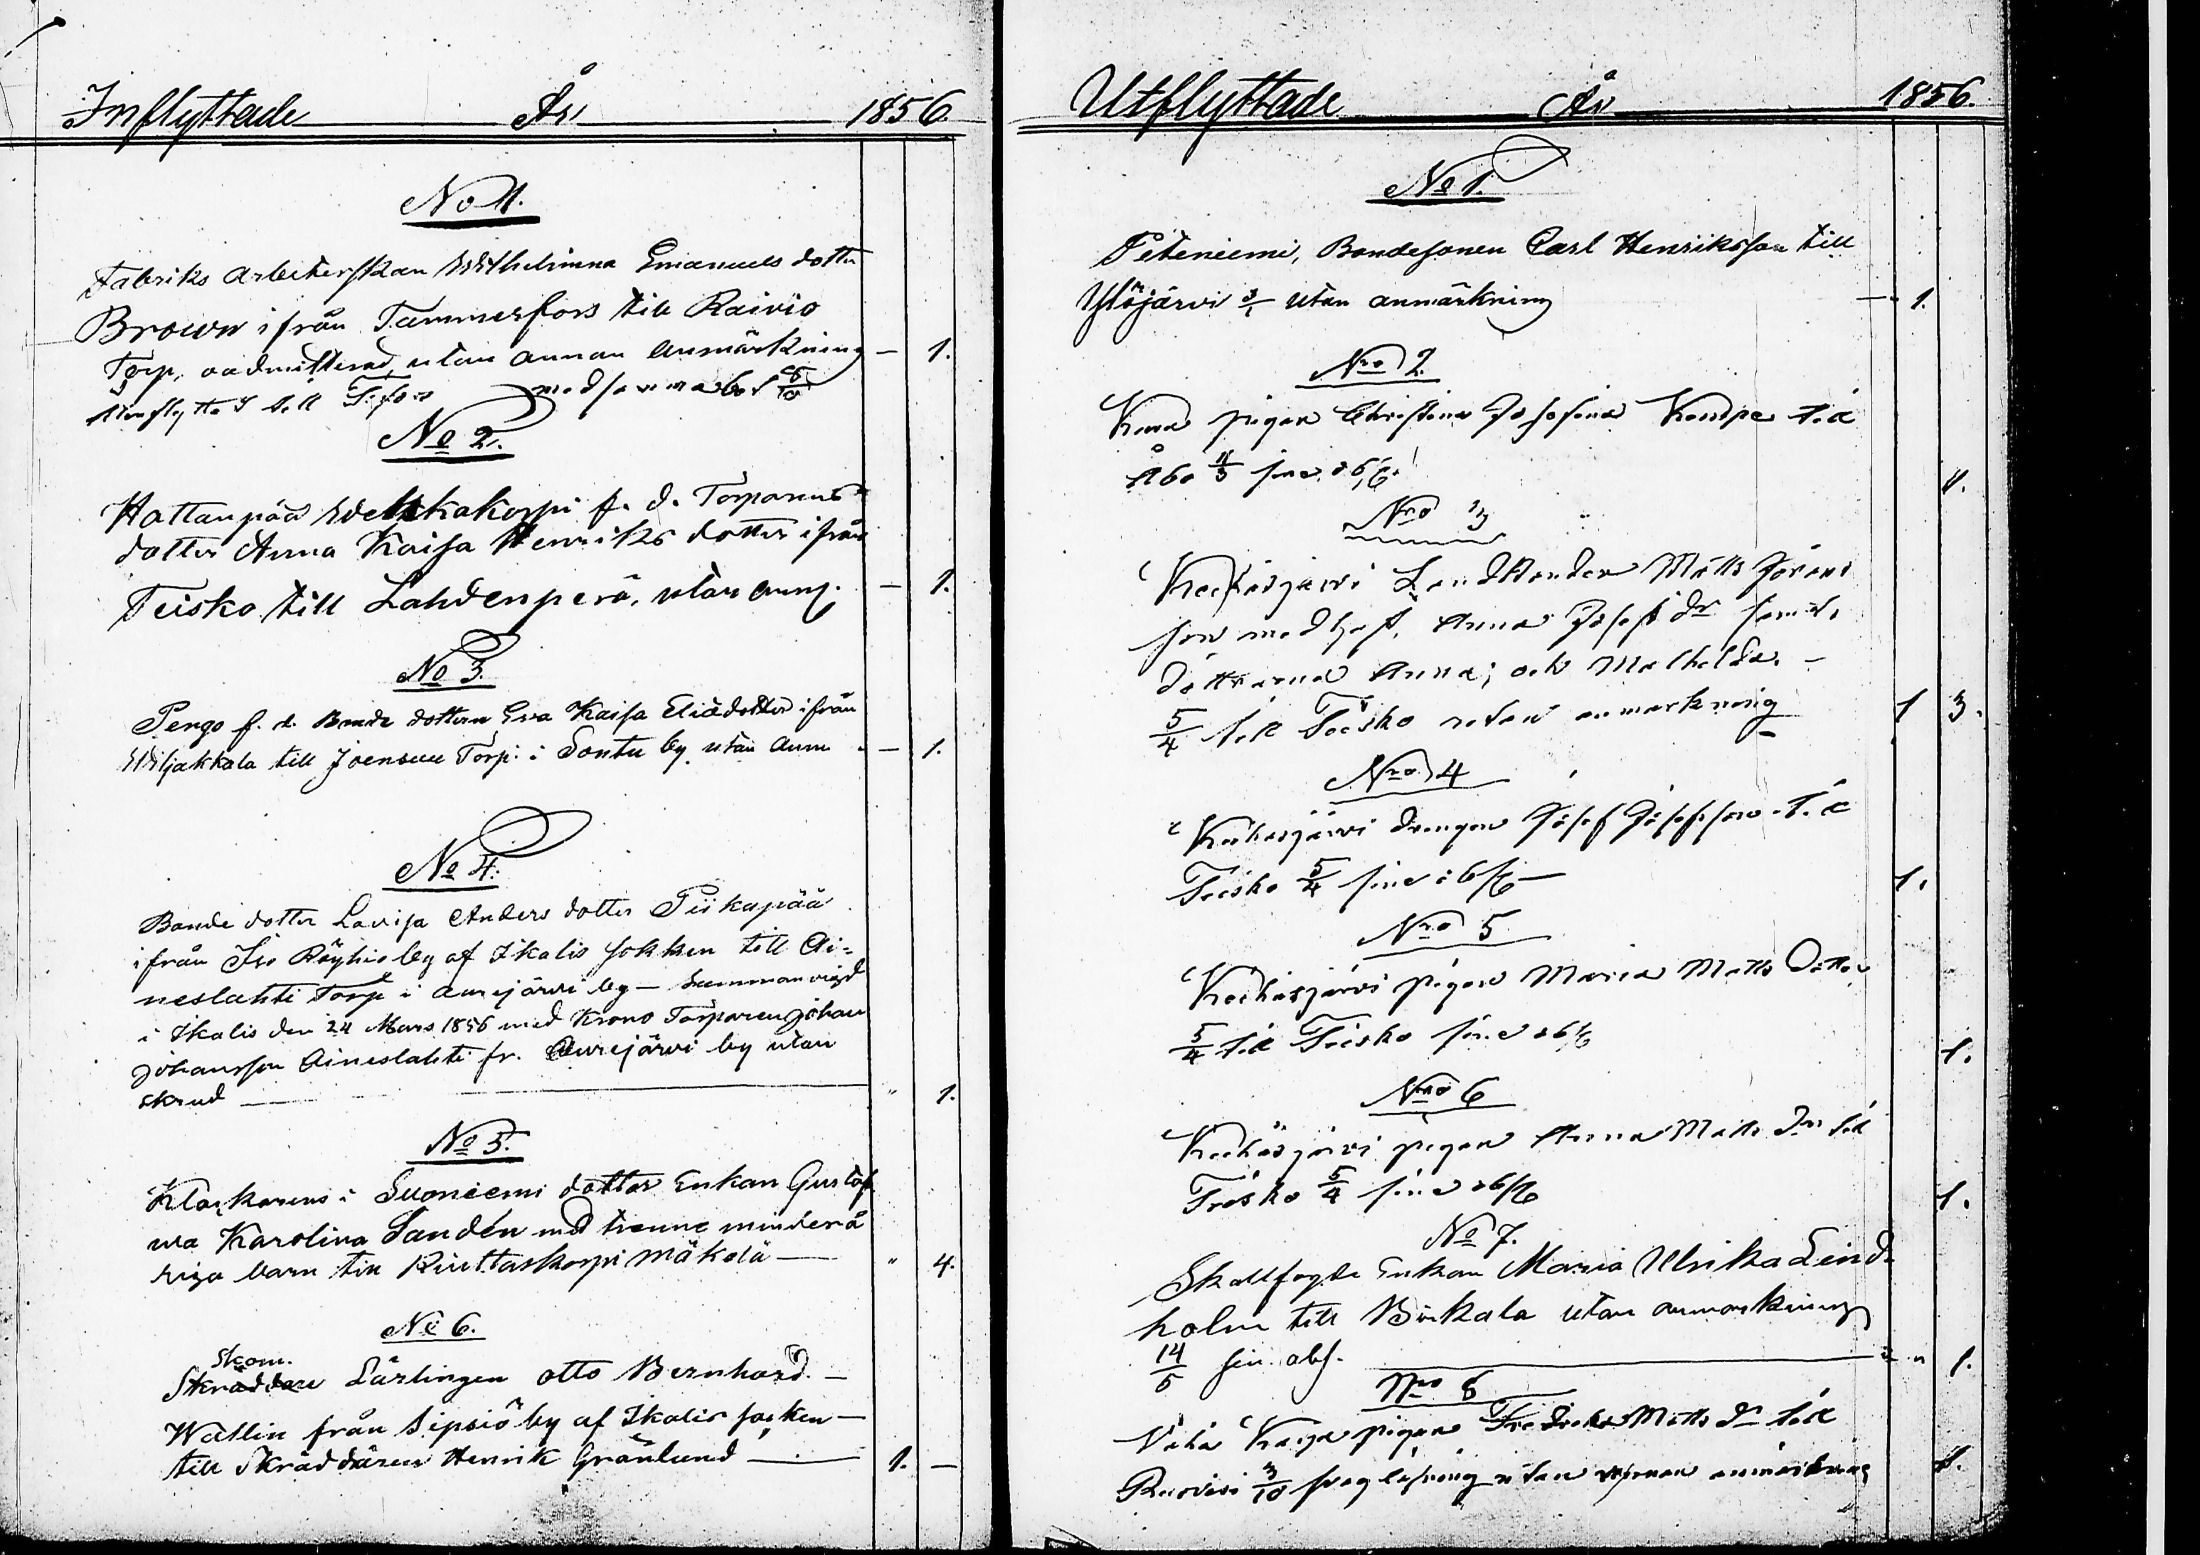 Inflyttade År 1856
No 1.
Fabriks arbeterskan Wilhelmina Emanuels dotter
Brown ifrån Tammerfors till Raivio
Torp, oadmitterad, utan annan anmärkning — 1.
återflytta till T:fors med samma bet 6/10
No 2.
Hattanpää f. d. Torpare
dotter Anna Kaisa Henriks dotter ifrån
Teisko till Lahdenperä, utan anm. — 1.
No 3.
Pengo f. d. Bonde dottern Eva Kaisa Eliædotter ifrån
Wiljakkala till Joensuu Torp i Sontu by utan Anm — 1.
No 4.
Bonde dotter Lovisa Anders dotter Piikapää
ifrån Iso Röyhio by af Ikalis sokken till Ai=
neslahti Torp i Aurejärvi by — Samman vigd
i Ikalis den 24 Mars 1856 med Krono Torparen Johan
Johansson Aineslahti fr. Aurejärvi by utan
skrud — " 1.
No 5.
Klockarens i Suoniemi dotter Enkan Gustaf
va Karolina Sandén med trenne minderå
riga barn till Riuttaskorpi Mäkelä — " 4.
No 6.
Skom.
Skräddare Lärlingen Otto Bernhard. —
Wallin från Sipsiö by af Ikalis socken —
till Skräddaren Henrik Grönlund — 1. —
Utflyttade År 1856.
No 1.
Peteniemi, Bondesonen Carl Henriksson till
Ylöjärvi 3/1 utan anmärkning — 1.
Nro 2.
pigan Christina Josefina Kempe till
Åbo 4/3 sine obs. 1.
Nro 3
Keihäsjärvi Matts Görans
son med hust. Anna Josefs dr samt
döttrarna Anna; och Mathilda. —
5/4 till Teisko utan anmärkning 1 3.
Nro 4
Keihäsjärvi drengen Josef Josefsson till
Teisko 5/4 sine obs — 1.
Nro 5
Keihäsjärvi pigan Maria Matts Dotter
5/4 till Teisko sine obs 1.
Nro 6
Keihäsjärvi pigan Anna Matts dr till
Teisko 5/4 sine obs 1.
No 7.
Skallfogde Enkan Maria Ulrika Lind=
holm till Birkala utan anmärkning
14/5 sin obs. — " 1.
Nro 8
Vähä Kaija pigan Fredrika Matts dr till
Ruovesi 3/10 utan annan anmärkning 1.